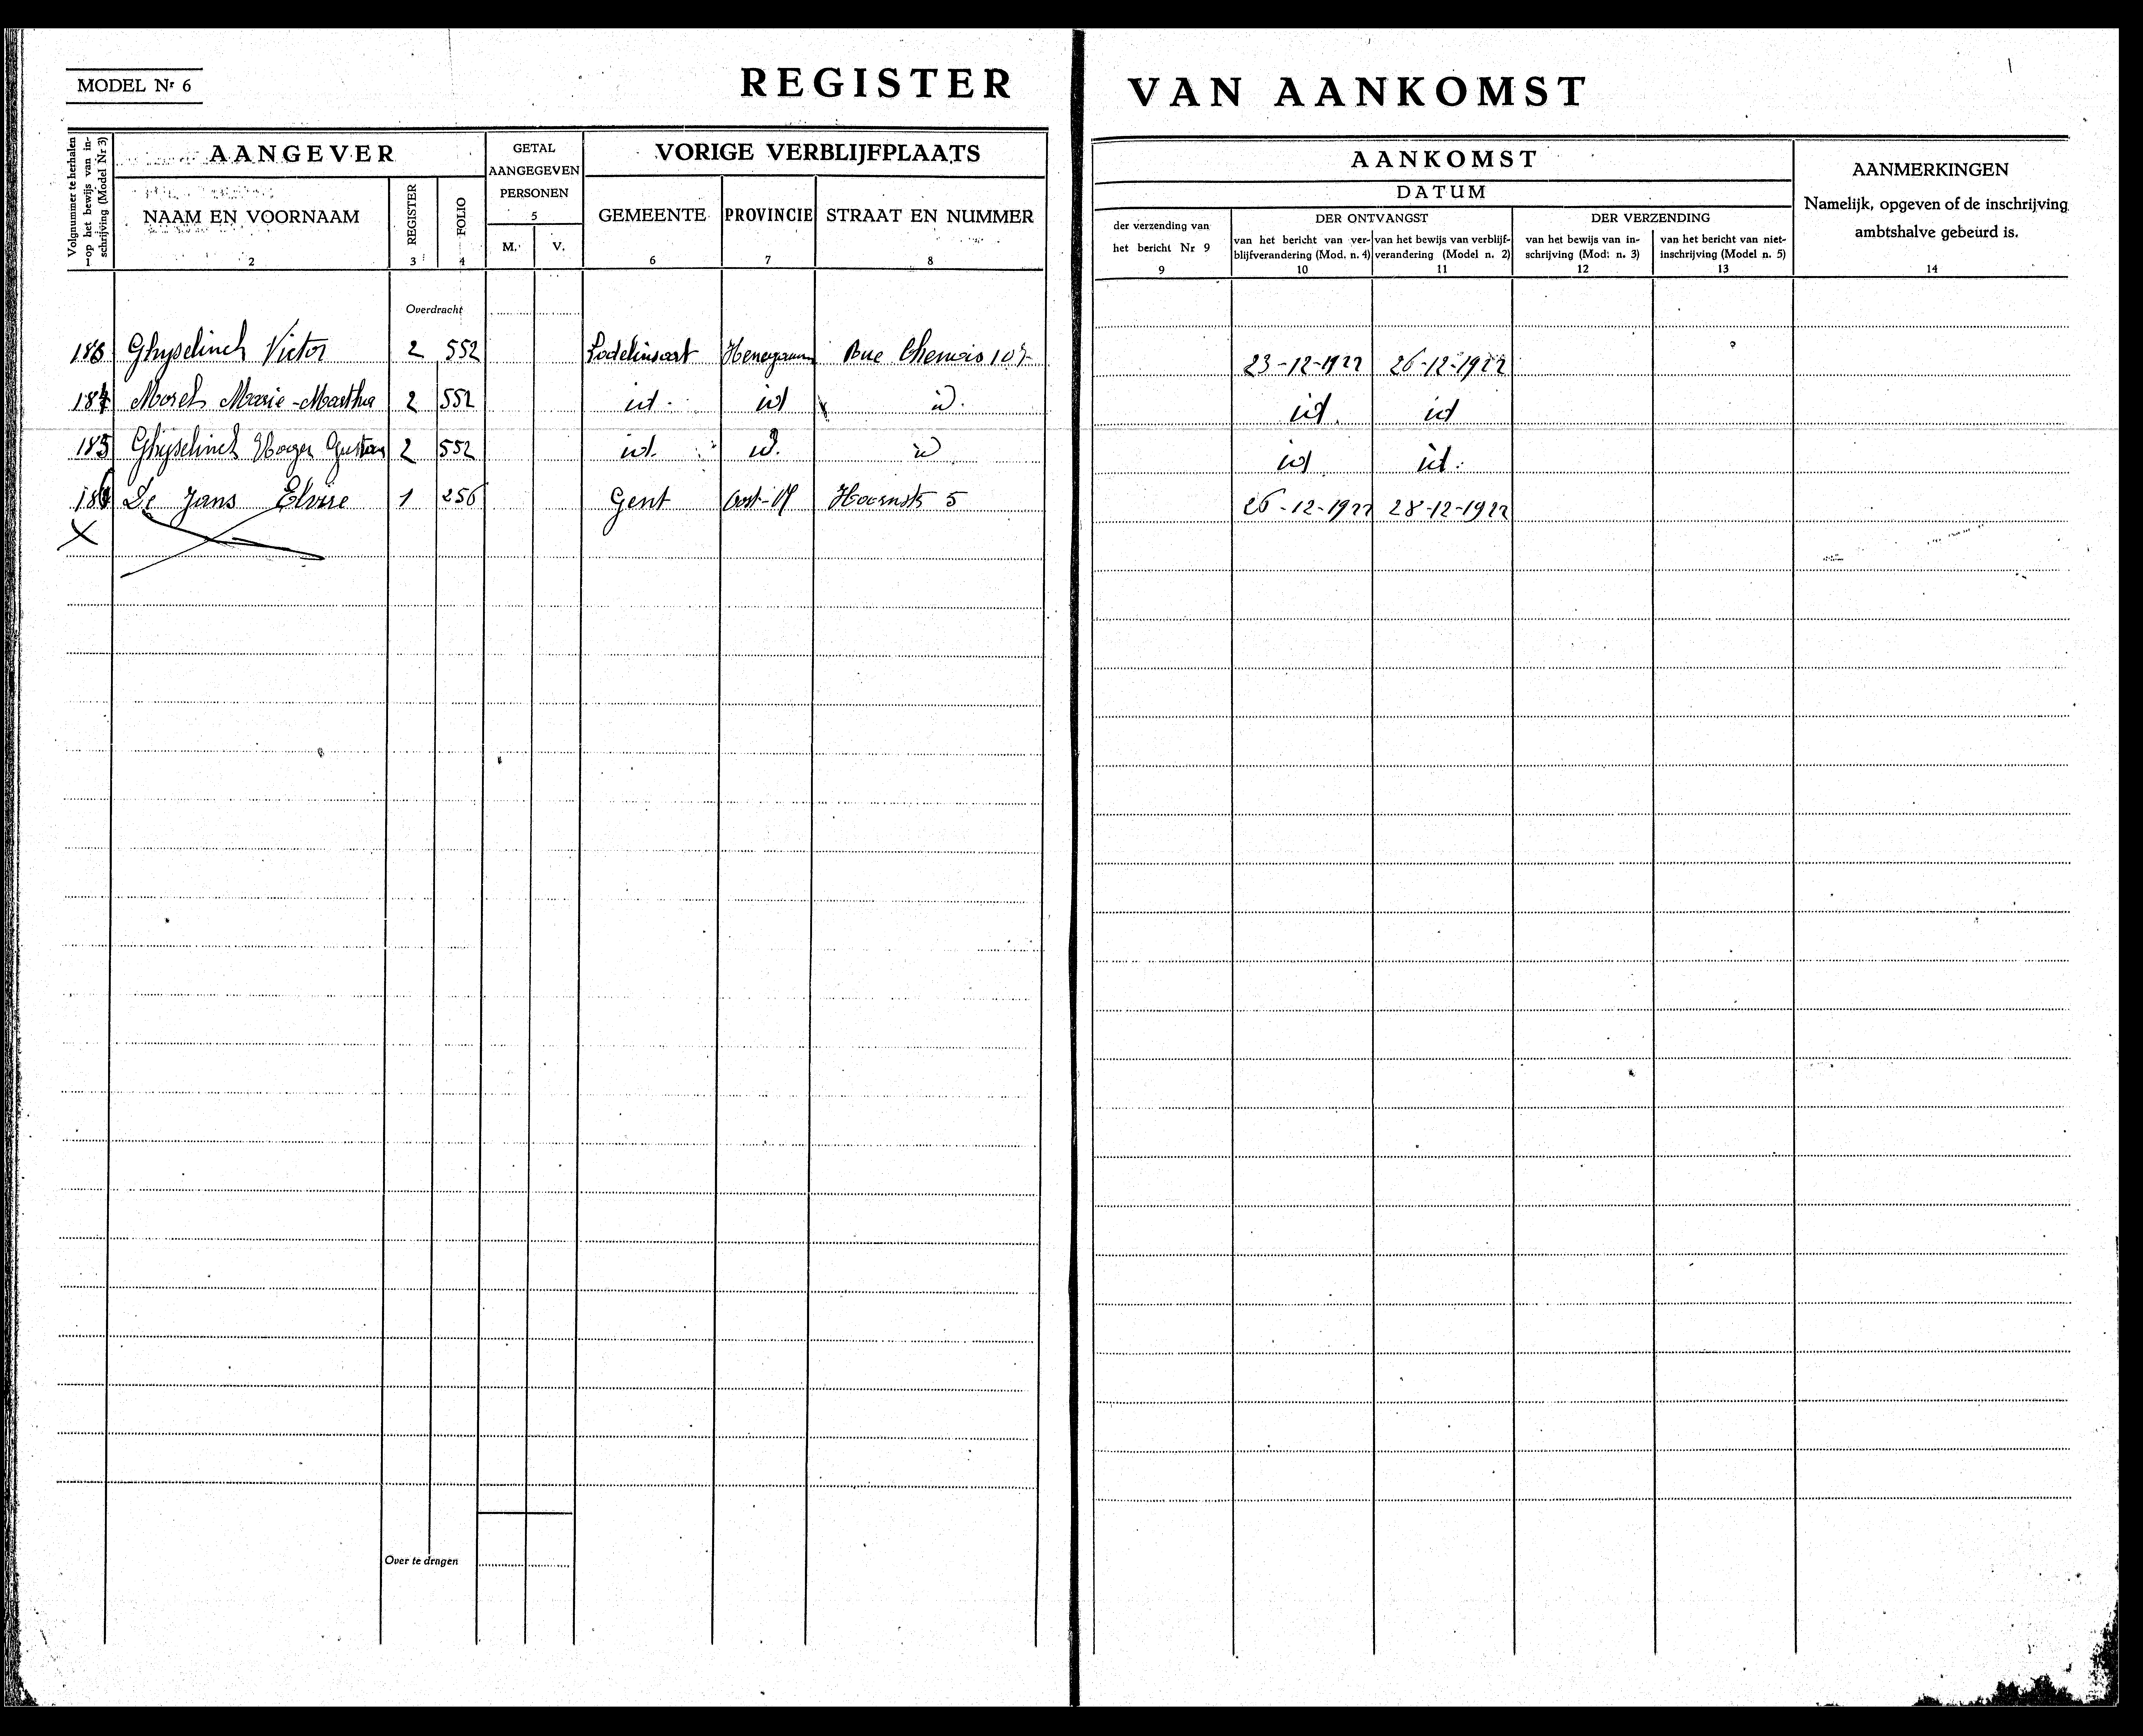 MODEL Nr 6
REGISTER VAN AANKOMST
Volgnummer te herhalen op het bewijs van inschrijving (Model Nr 3)
1
AANGEVER
NAAM EN VOORNAAM
2
REGISTER
3
FOLIO
4
GETAL
AANGEGEVEN
PERSONEN
5
M.
V.
VORIGE VERBLIJFPLAATS
GEMEENTE
6
PROVINCIE
7
STRAAT EN NUMMER
8
AANKOMST
DATUM
der verzending van
het bericht Nr 9
9
DER ONTVANGST
van het bericht van ver-
blijfverandering (Mod. n. 4)
10
van het bewijs van verblijf-
verandering (Model n. 2)
11
DER VERZENDING
van het bewijs van in-
schrijving (Mod. n. 3)
12
van het bericht van niet-
inschrijving (Model n. 5)
13
AANMERKINGEN
Namelijk, opgeven of de inschrijving
ambtshalve gebeurd is.
14
Overdracht
183 Ghyselinck Victor 2 552 Lodelinsart Henegouw Rue Chemois 23-12-1922 26-12-1922
184 Morel Marie-Martha 2 552 id. id id. id. id
185 Ghyselinck Roger Gustaaf 2 552 id. id. id id id.
186 De Jans Elvire 1 256 Gent Oost-Vl 5 26-12-1922 28-12-1922
Over te dragen